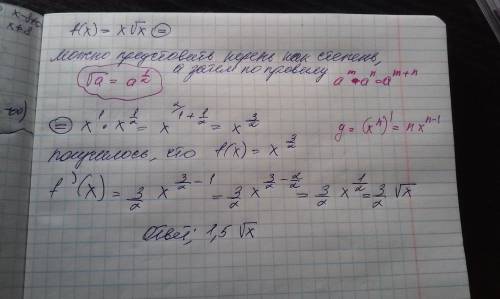 x-8+c
x+8
f(x) = x√x ⊜
можно представить корень как степень,
а затем по правилу
√a = a^(1/2)
a^m • a^n = a^(m+n)
⊜ x^1 • x^(1/2) = x^(2/1+1/2) = x^(3/2)
g = (x^n)' = n x^(n-1)
получилось, что f(x) = x^(3/2)
f'(x) = 3/2 x^(3/2 - 1) = 3/2 x^(3/2 - 2/2) = 3/2 x^(1/2) = 3/2 √x
Ответ: 1,5 √x